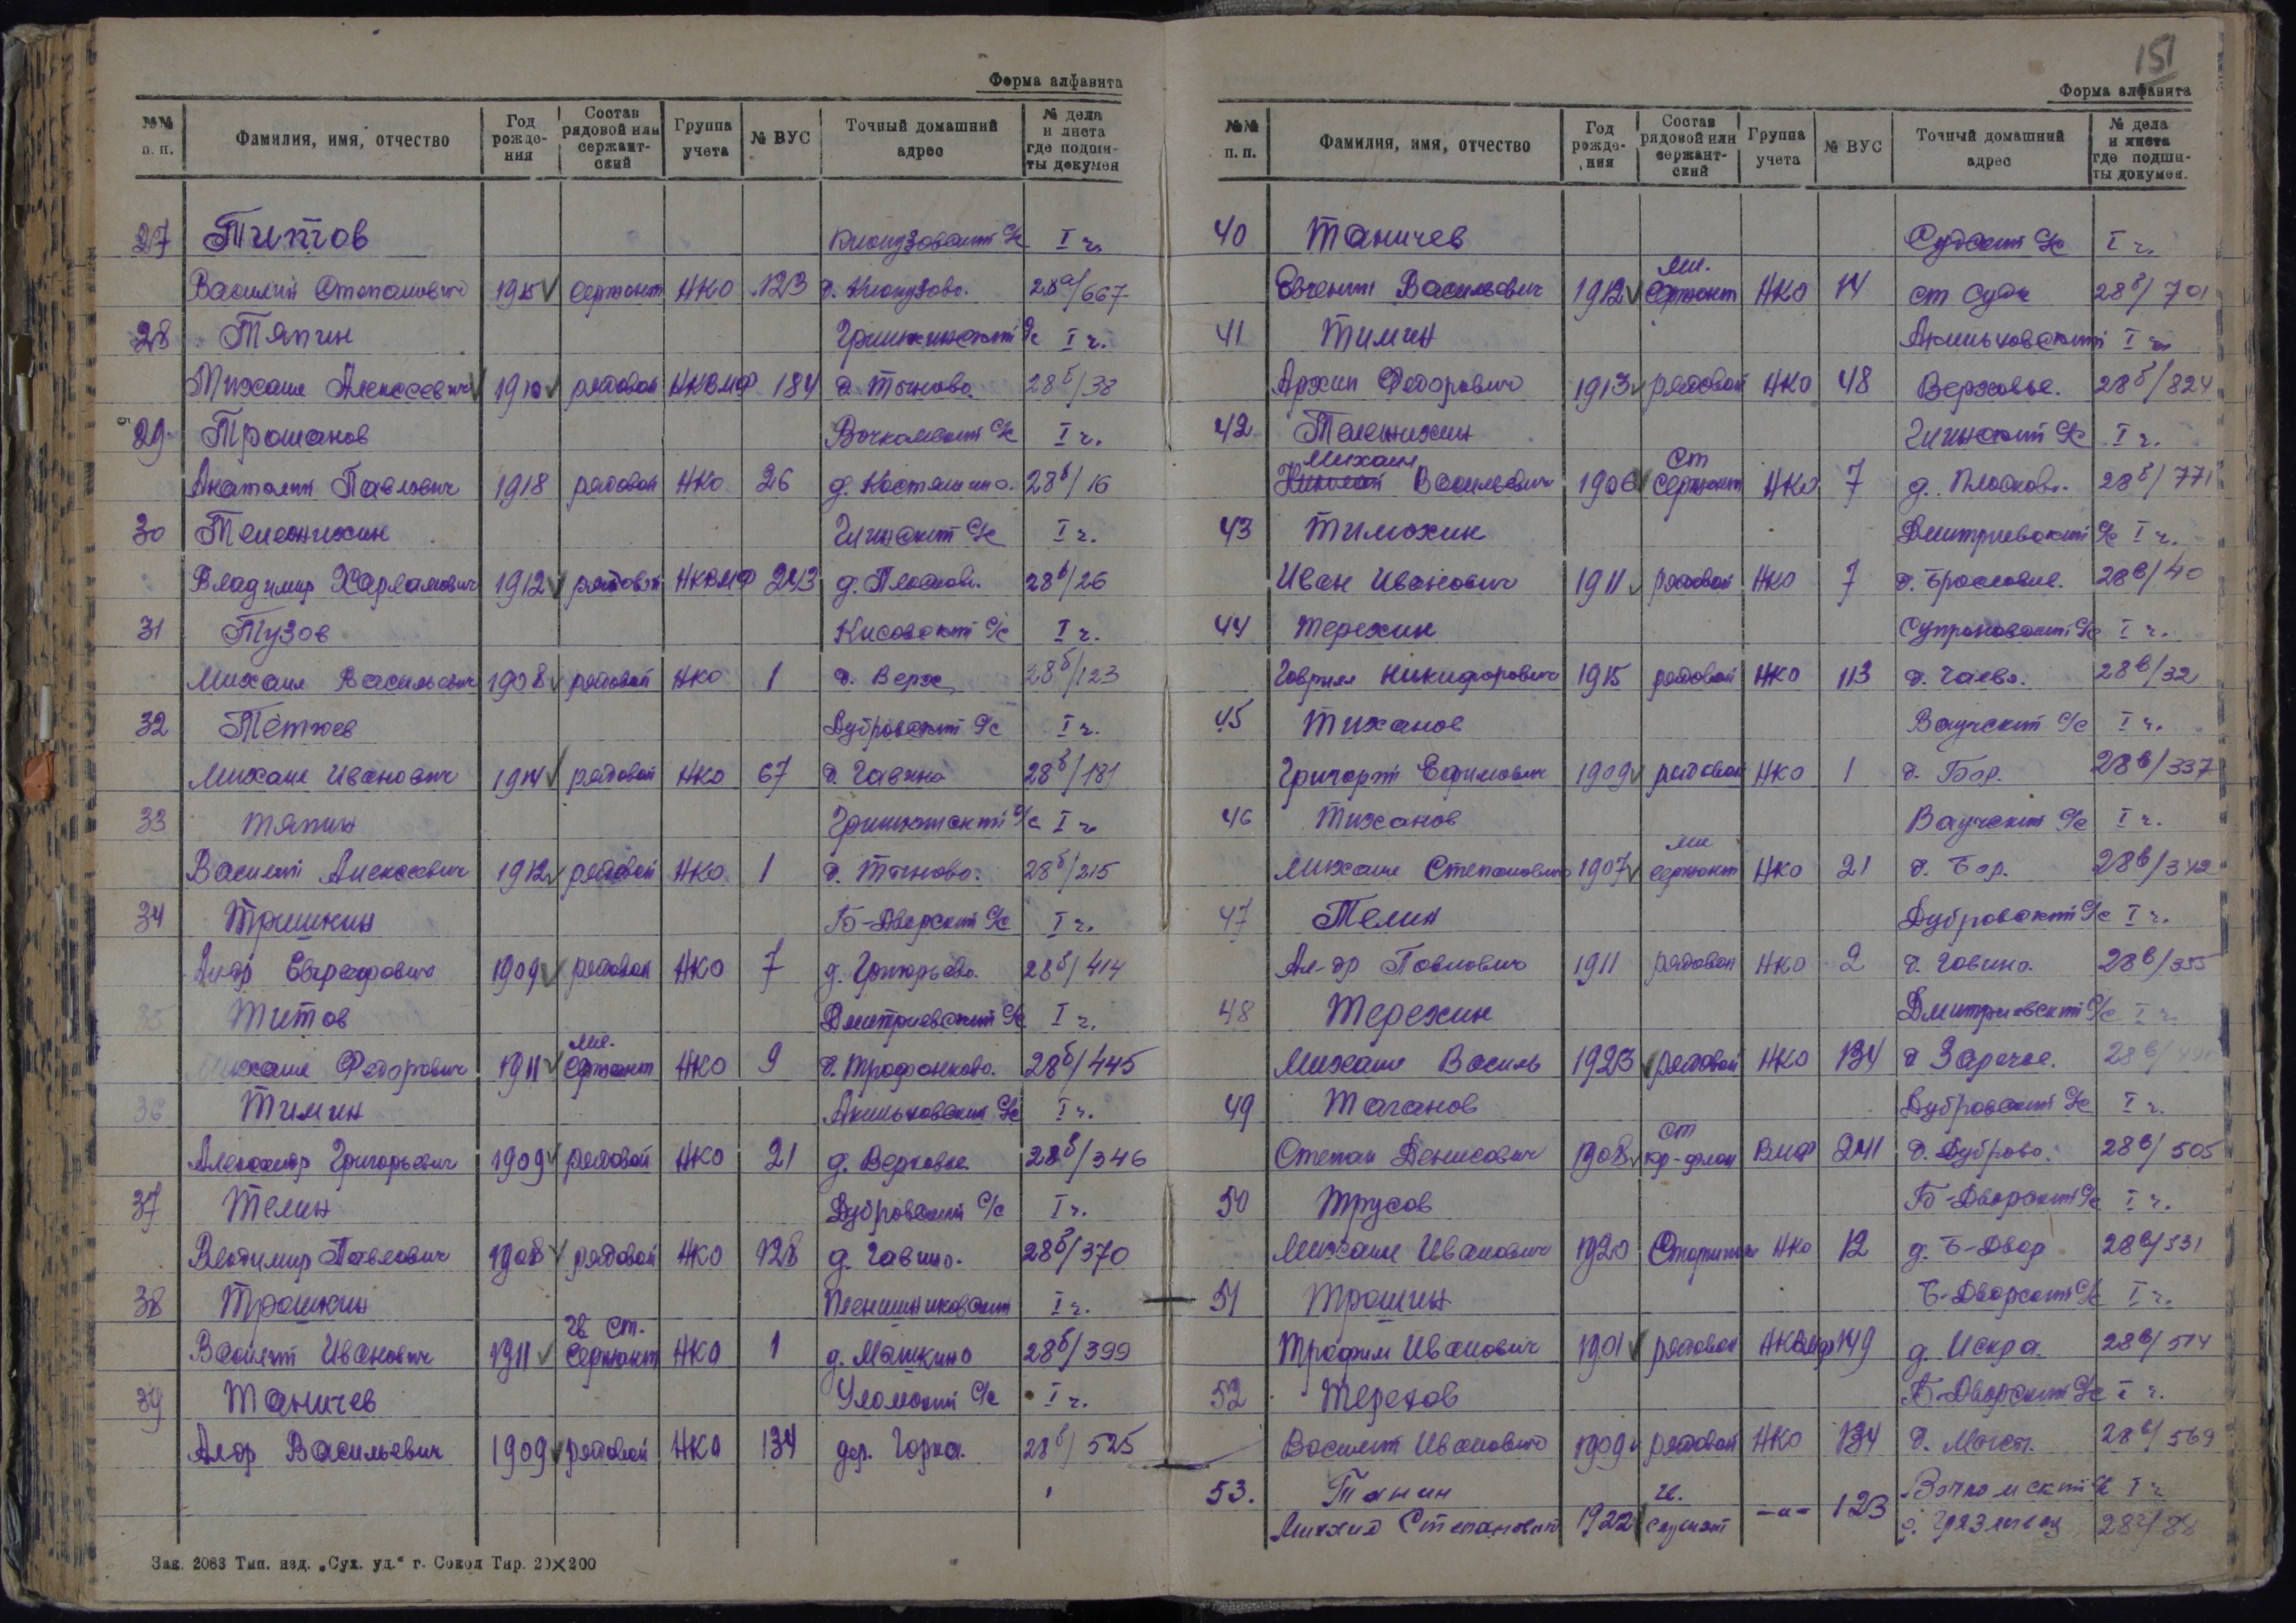 151
Форма алфавита
№№ п. п. Фамилия, имя, отчество Год рождения Состав рядовой или сержантский Группа учета № ВУС Точный домашний адрес № дела и листа где подшиты докумен
27 Титов I ч.
Василий Степанович сержант НКО 123 28а/667
28 Тяпин I ч.
Михаил Алексеевич 1910 рядовой НКВМФ 184 28б/38
29 I ч.
Анатолий Павлович 1918 рядовой НКО 26 28в/16
30 Телеснихин I ч.
Владимир Харламович 1912 рядовой НКВМФ 243 28в/26
31 Тузов Кисовский С/с I ч.
Михаил Васильевич 1908 рядовой НКО 1 д. Верх 28б/123
32 Дубровский С/с I ч.
Михаил Иванович 1914 рядовой НКО 67 д. Гавино 28б/181
33 Тяпин I ч.
Василий Алексеевич 1912 рядовой НКО 1 28б/215
34 Тришкин Б-Дворский С/с I ч.
Алдр Евграфович 1909 рядовой НКО 7 д. Григорьево. 28б/414
35 Титов Дмитриевский С/с I ч.
Михаил Федорович 1911 мл. Сержант НКО 9 д. Трофанково. 28б/445
36 Тимин I ч.
Александр Григорьевич 1909 рядовой НКО 21 д. Верховье 28б/346
37 Телин Дубровский С/с I ч.
Владимир Павлович 1908 рядовой НКО 128 д. Гавино. 28б/370
38 Трошкин I ч.
Василий Иванович 1911 Гв. ст. Сержант НКО 1 д. Машкино 28б/399
39 Таничев Уломский С/с I ч.
Алдр Васильевич 1909 рядовой НКО 134 дер. Горка. 28б/525
Зак. 2083 Тип. изд. „Сух. уд.“ г. Сокол Тир. 20×200
Форма алфавита
№№ п. п. Фамилия, имя, отчество Год рождения Состав рядовой или сержантский Группа учета № ВУС Точный домашний адрес № дела и листа где подшиты докумен.
40 Таничев Судский С/с I ч.
Евгений Васильевич 1912 мл. Сержант НКО 14 ст Суда 28б/701
41 Тимин I ч.
Архип Федорович 1913 рядовой НКО 48 Верховье. 28б/824
42 Телеснихин I ч.
Михаил Васильевич 1906 Ст Сержант НКО 7 д. Плосково. 28б/771
43 Тимохин Дмитриевский С/с I ч.
Иван Иванович 1911 рядовой НКО 7 28в/40
44 Терехин I ч.
Гаврил Никифорович 1915 рядовой НКО 113 д. Чаево. 28в/32
45 Тиханов Ваучский С/с I ч.
Григорий Ефимович 1909 рядовой НКО 1 д. Бор. 28в/337
46 Тиханов Ваучский С/с I ч.
Михаил Степанович 1907 мл сержант НКО 21 д. Бор. 28в/342
47 Телин Дубровский С/с I ч.
Ал-др Павлович 1911 рядовой НКО 2 д. Гавино. 28в/355
48 Терехин Дмитриевский С/с I ч.
Михаил Василь 1923 рядовой НКО 134 д Заречье. 28в/
49 Таганов Дубровский С/с I ч.
Степан Денисович 1908 ст кр-флот ВМФ 241 д. Дуброво. 28в/505
50 Трусов Б-Дворский С/с I ч.
Михаил Иванович 1920 Старшина НКО 12 д. Б-Двор 28в/531
51 Трошин Б-Дворский С/с I ч.
Трофим Иванович 1901 рядовой НКВМФ 149 д. Искра. 28в/514
52 Терехов Б-Дворский С/с I ч.
Василий Иванович 1909 рядовой НКО 134 28в/569
53. Танин I ч
Михаил Степанович 1922 Гв. сержант -"- 123 28г/88